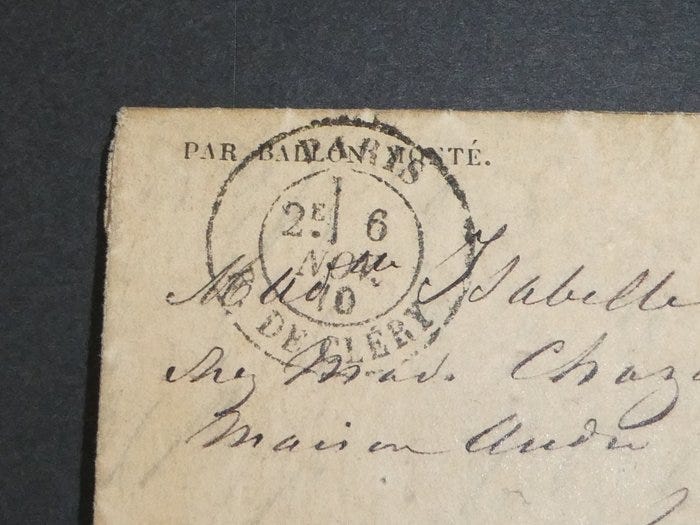 PAR BALLON MONTÉ.
PARIS
2E 6
NOV.
70
DE CLÉRY
Mad^me Isabelle
chez Mad.
Maison